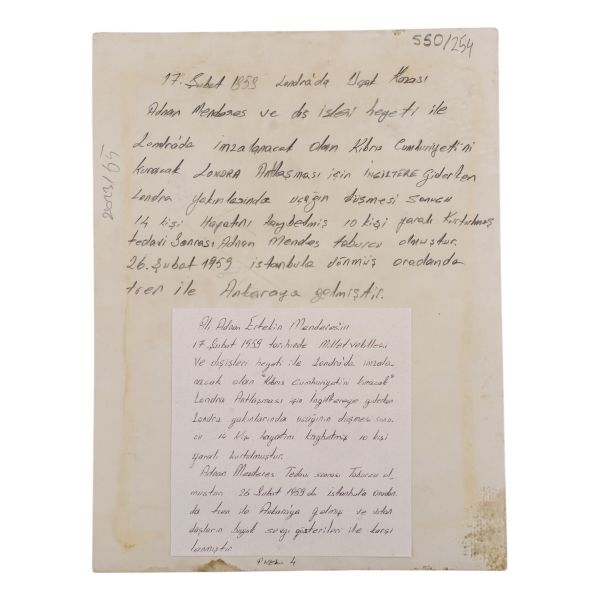 550/254
17. Şubat 1959 Londra'da Uçak Kazası
Adnan Menderes ve dış işleri heyeti ile
Londra'da imzalanacak olan Kıbrıs Cumhuriyeti'ni
kuracak LONDRA Antlaşması için İNGİLTERE giderken
Londra yakınlarında uçağın düşmesi sonucu
14 kişi Hayatını kaybetmiş 10 kişi yaralı kurtulmuş
tedavi Sonrası Adnan Mendes taburcu olmuştur.
26. Şubat 1959 istanbula dönmüş oradanda
tren ile Ankaraya gelmiştir.
Ali Adnan Ertekin Menderes'in
17 Şubat 1959 tarihinde Milletvekilleri
ve dışişleri heyeti ile Londra'da imzala-
nacak olan "Kıbrıs Cumhuriyeti'ni kuracak"
Londra Antlaşması için İngiltereye giderken
Londra yakınlarında uçağının düşmesi sonu-
cu 14 kişi hayatını kaybetmiş 10 kişi
yaralı kurtulmuştur.
Adnan Menderes Tedavi sonrası Taburcu ol-
muştur. 26 Şubat 1959 da istanbula oradan
da tren ile Ankara'ya gelmiş ve
büyük sevgi gösterileri ile karşı
lanmıştır.
4